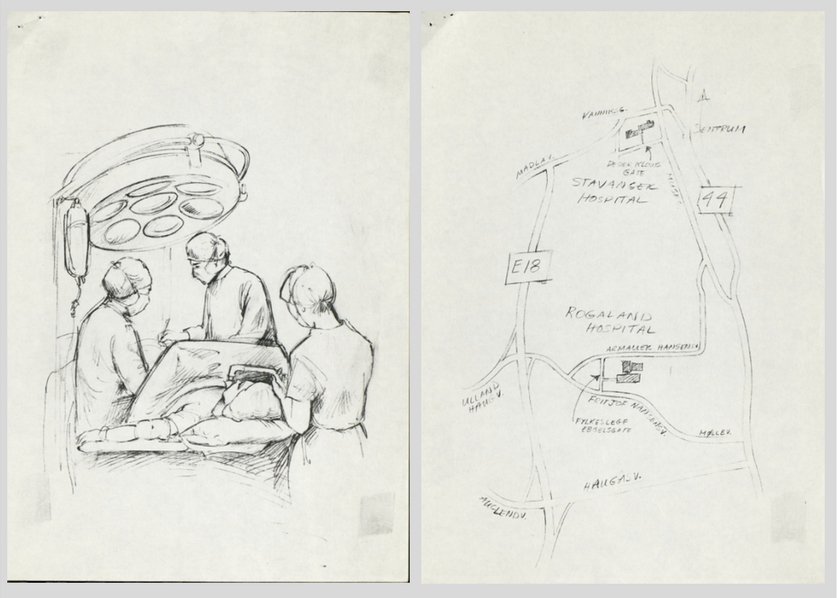 VANNKSG.
SENTRUM
MADLAV.
PEDER KLOWS
GATE
STAVANGER
HOSPITAL
44
E18
ROGALAND
HOSPITAL
ARMAUER HANSENSV.
ULLAND
HAUGV.
FRITJOF NANSENSV.
FYLKESLEGE
EBBELSGATE
MØLLEV.
HAUGÅLV.
AUGLENDV.